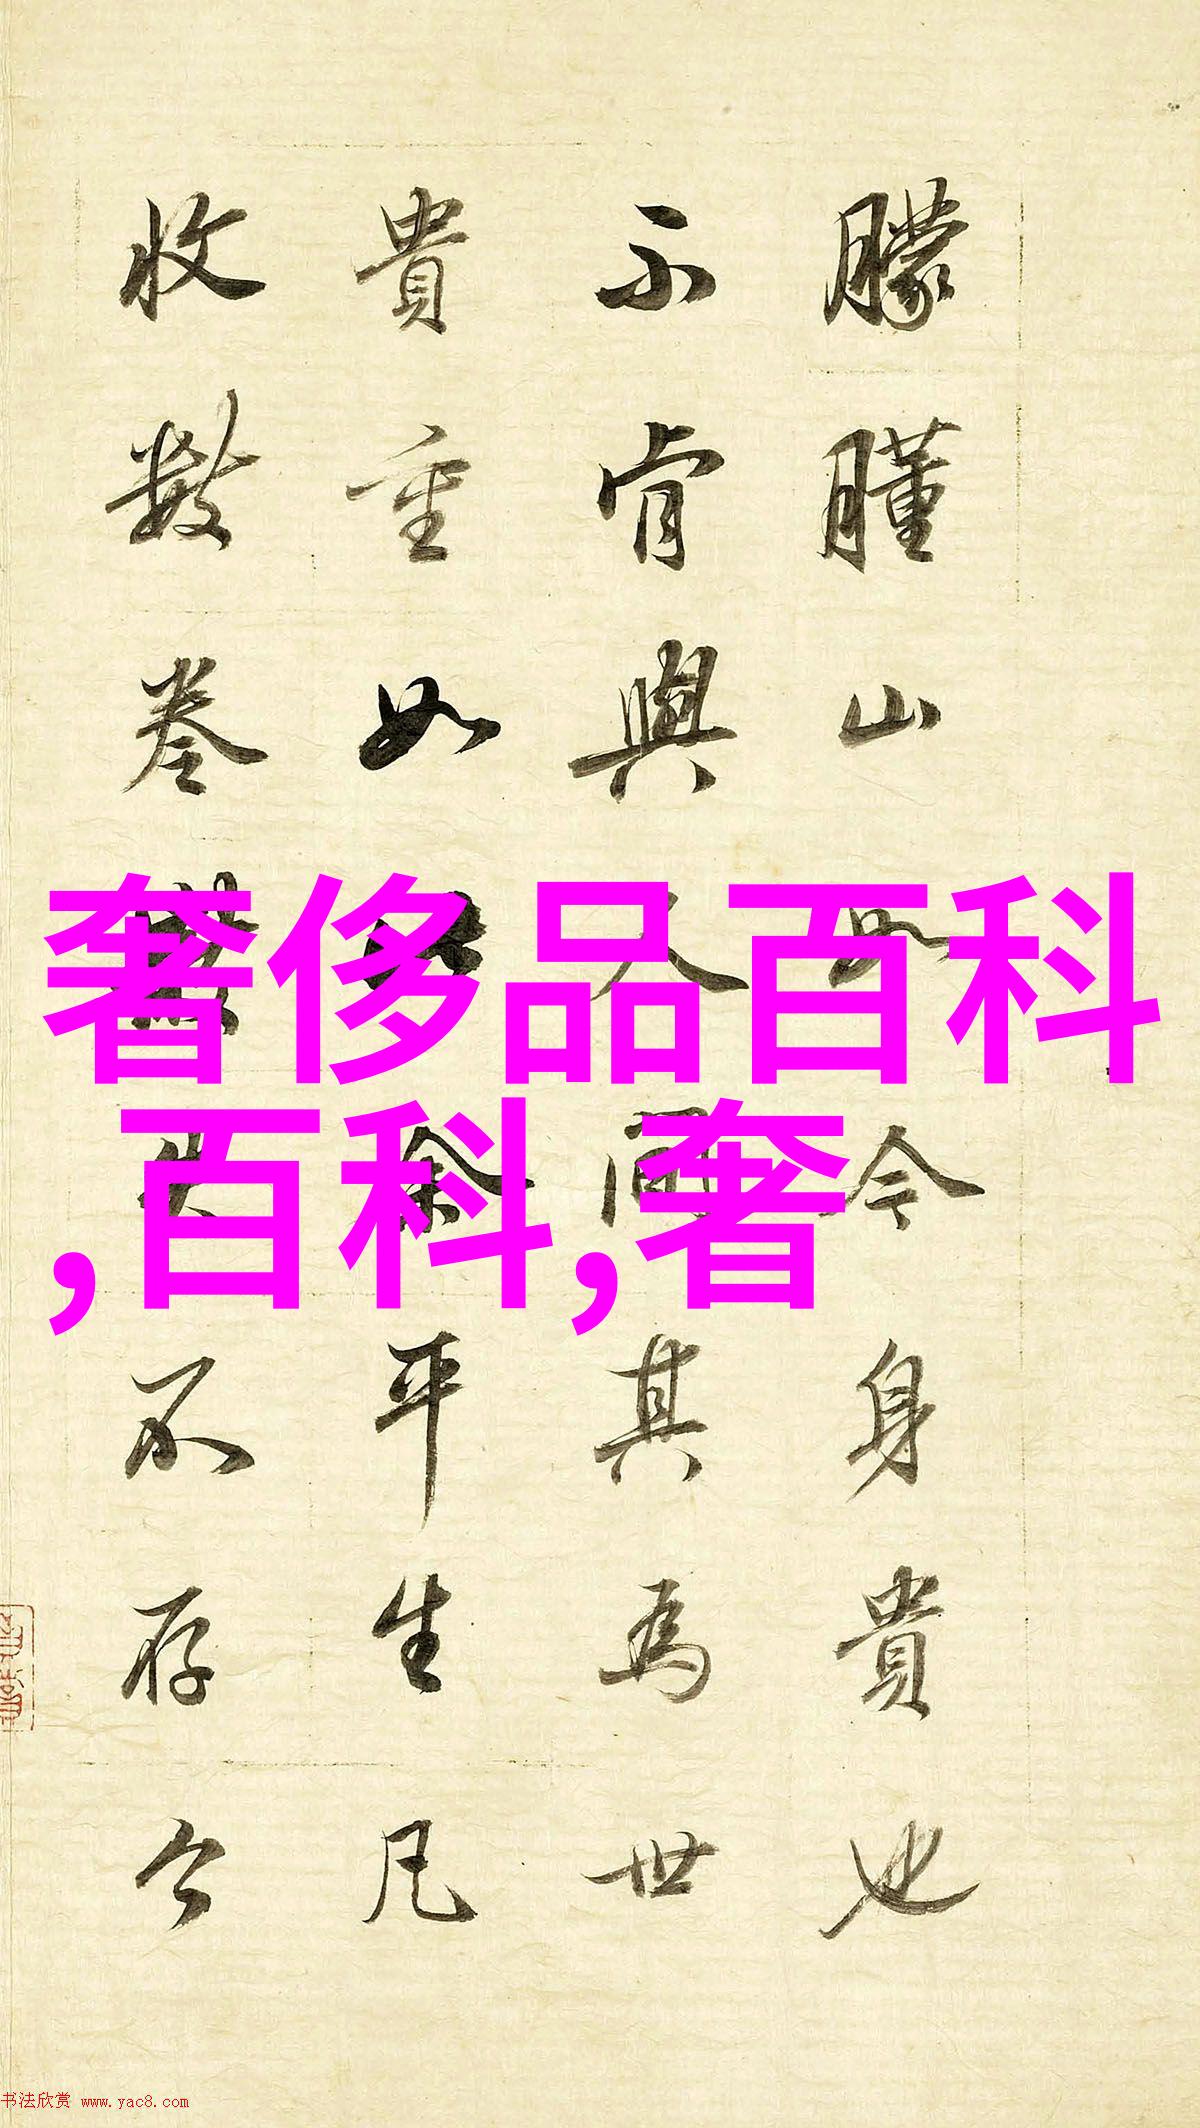 奢侈品百科
,百科,奢
朦山今身貴也
不肯與人間其為世
貴重如余平生凡
收數卷失不存今
书法欣赏 www.yac8.com